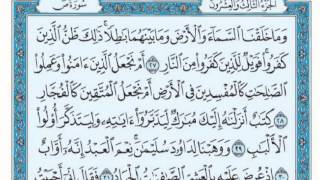 الجزء الثالث والعشرون سورة ص
وَمَا خَلَقْنَا ٱلسَّمَآءَ وَٱلْأَرْضَ وَمَا بَيْنَهُمَا بَٰطِلًا ذَٰلِكَ ظَنُّ ٱلَّذِينَ
كَفَرُوا۟ فَوَيْلٌ لِّلَّذِينَ كَفَرُوا۟ مِنَ ٱلنَّارِ ٢٧ أَمْ نَجْعَلُ ٱلَّذِينَ ءَامَنُوا۟ وَعَمِلُوا۟
ٱلصَّٰلِحَٰتِ كَٱلْمُفْسِدِينَ فِى ٱلْأَرْضِ أَمْ نَجْعَلُ ٱلْمُتَّقِينَ كَٱلْفُجَّارِ
٢٨ كِتَٰبٌ أَنزَلْنَٰهُ إِلَيْكَ مُبَٰرَكٌ لِّيَدَّبَّرُوٓا۟ ءَايَٰتِهِۦ وَلِيَتَذَكَّرَ أُو۟لُوا۟
ٱلْأَلْبَٰبِ ٢٩ وَوَهَبْنَا لِدَاوُۥدَ سُلَيْمَٰنَ نِعْمَ ٱلْعَبْدُ إِنَّهُۥٓ أَوَّابٌ
٣٠ إِذْ عُرِضَ عَلَيْهِ بِٱلْعَشِىِّ ٱلصَّٰفِنَٰتُ ٱلْجِيَادُ ٣١ فَقَالَ إِنِّىٓ أَحْبَبْتُ